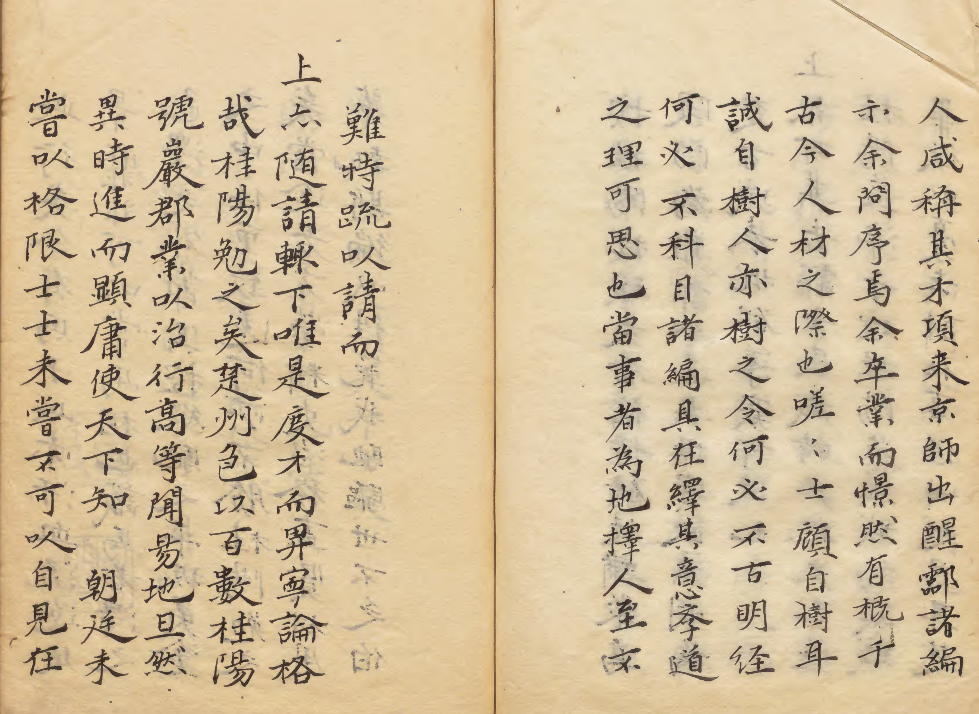 人咸稱其才項来京師出醒鄠諸編
示余問序焉余卒業而憬然有概于
古今人材之際也嗟〻士顧自樹耳
誠自樹人亦樹之令何必不古明经
何必不科目諸編具在繹其意孝道
之理可思也當事者為地擇人至不
難特疏以請而
上亦随請輙下唯是度才而畀寧論格
哉桂陽勉之矣楚州邑以百數桂陽
號嚴郡業以治行高等聞昜地旦然
異時進而顕庸使天下知 朝廷未
嘗以格限士士未嘗不可以自見在